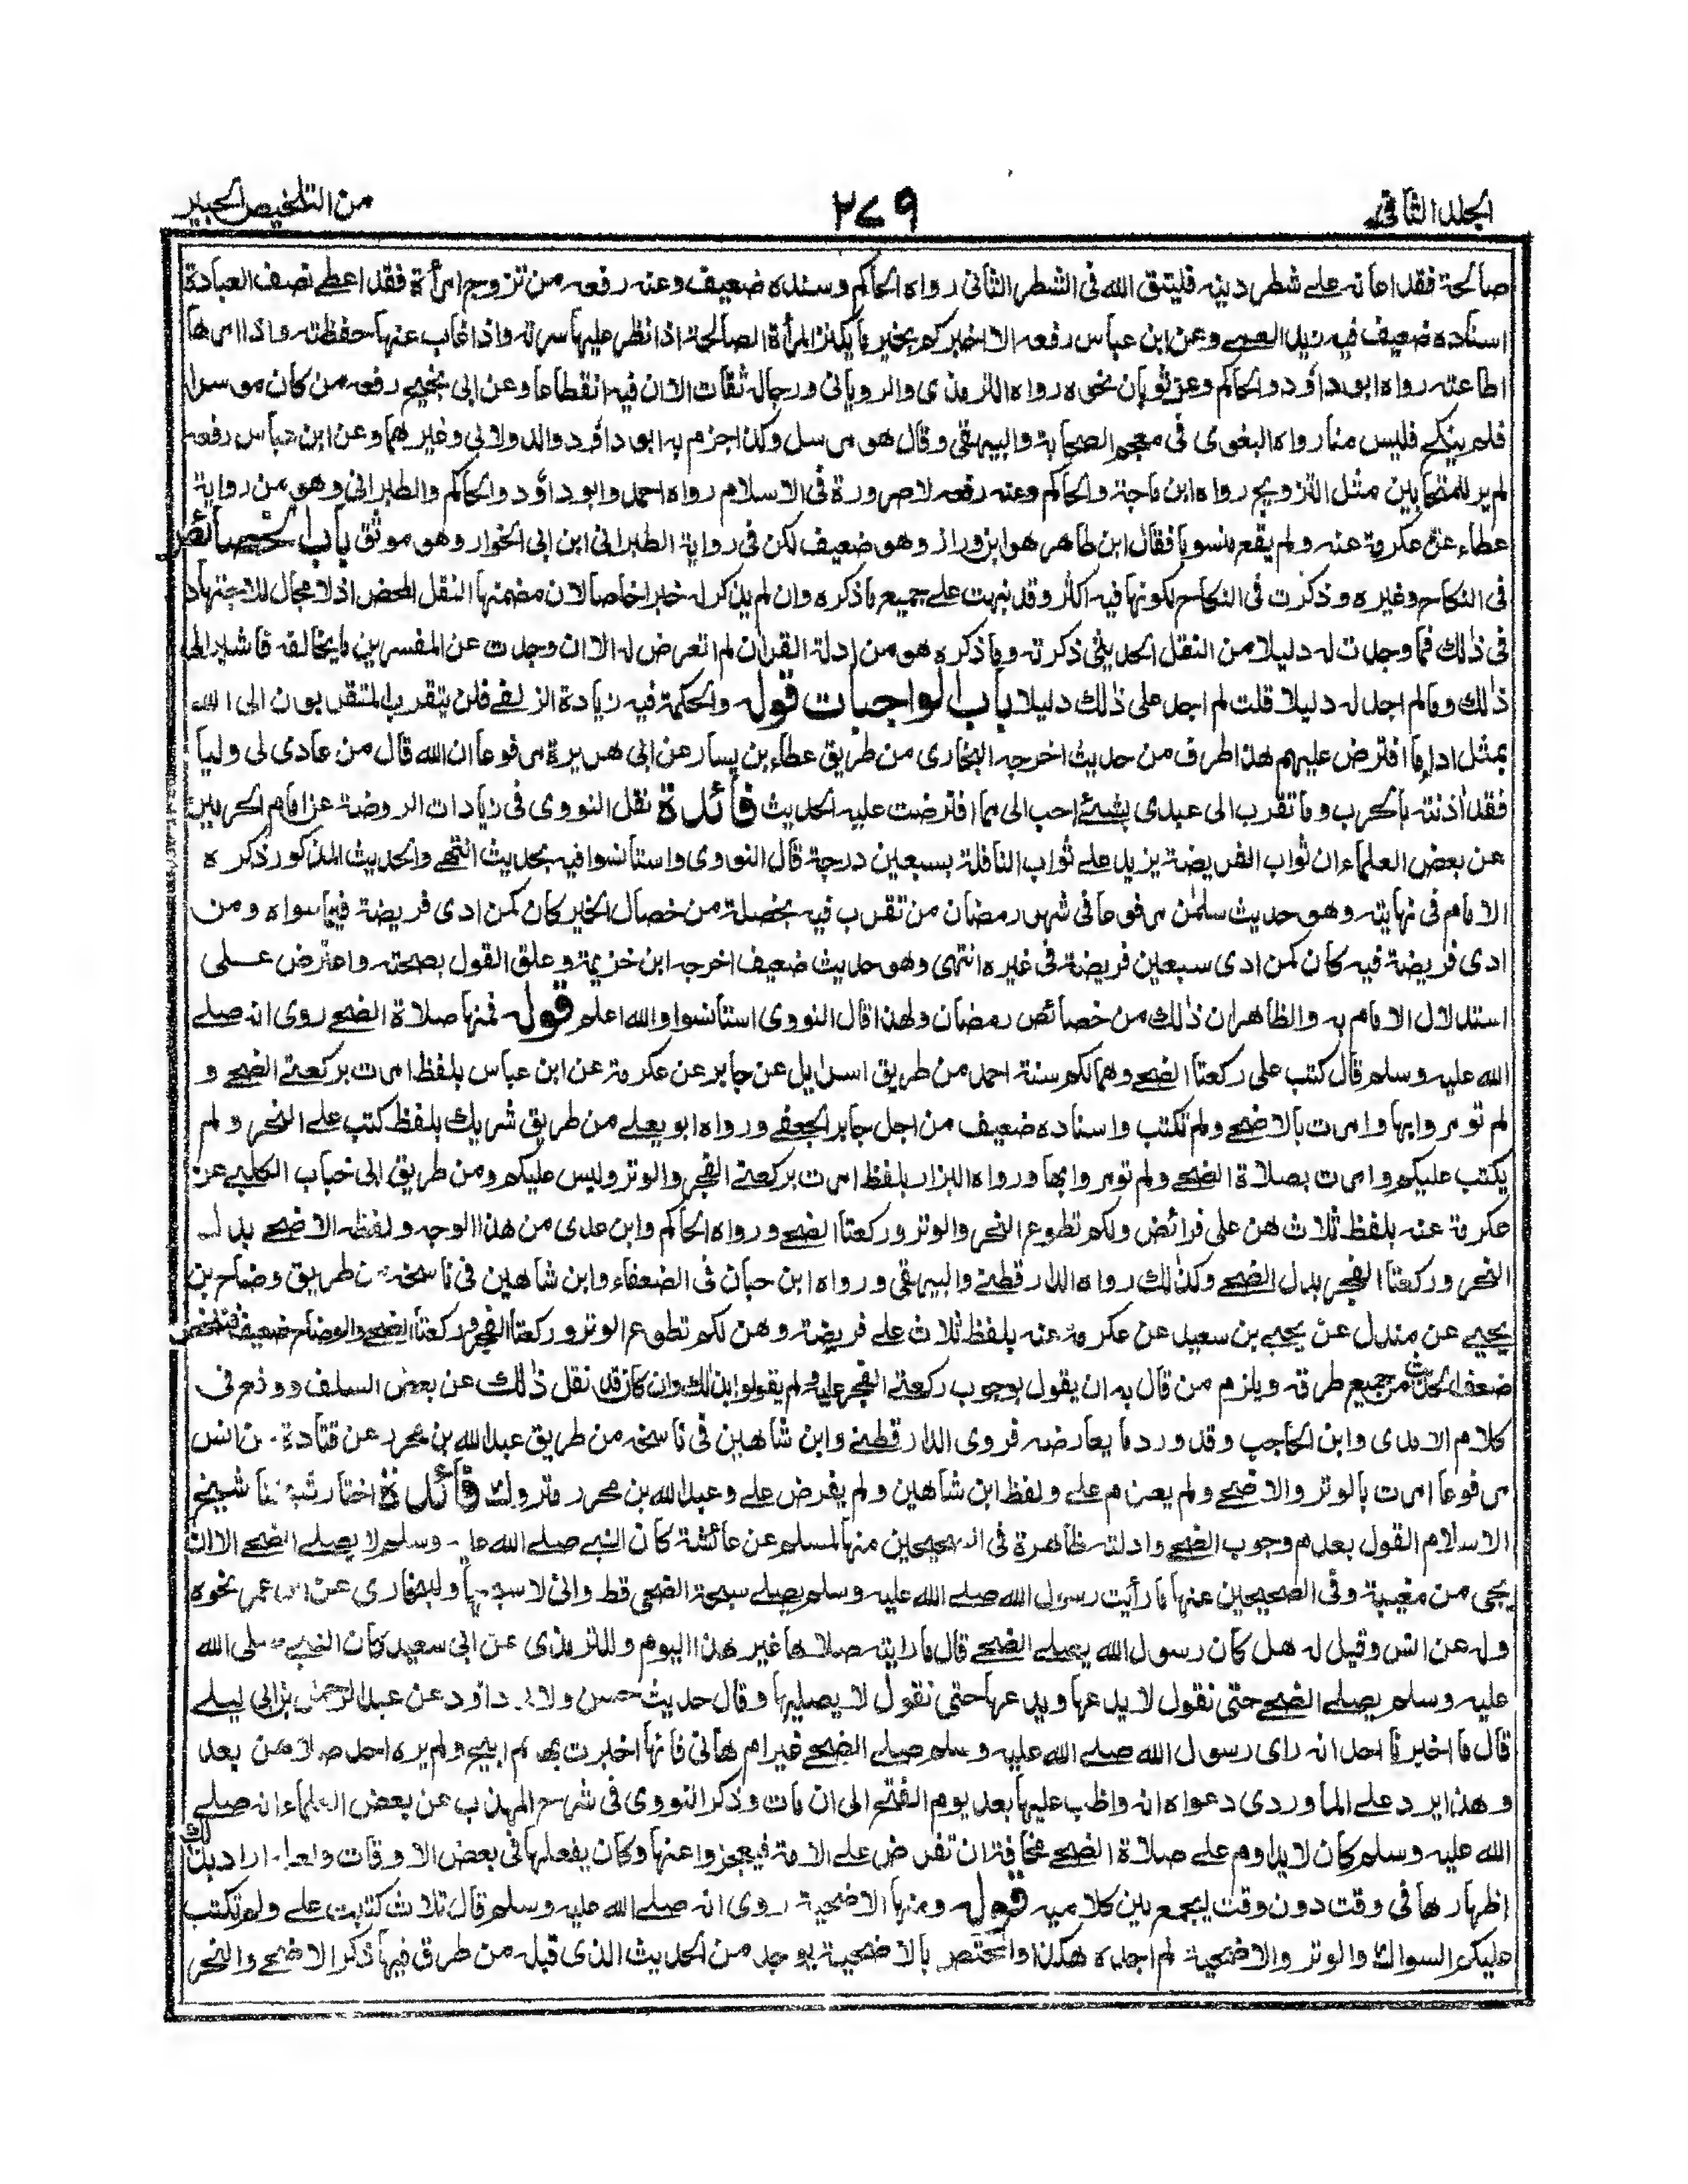 الجلد الثاني
٢٧٩
من التلخيص الحبير
صالحة فقد اعانه على شطر دينه فليتق الله فى الشطر الثانى رواه الحاكم وسنده ضعيف وعنه رفعه من تزوج امرأة فقد اعطى نصف العبادة
اسناده ضعيف فيه زيد العمى وعن ابن عباس رفعه الا اخبركم بخير ما يكنز المرأة الصالحة اذا نظر عليها سرته واذا غاب عنها حفظته واذا امرها
اطاعته رواه ابو داؤد والحاكم وعن ثوبان نحوه رواه الترمذى والرويانى ورجاله ثقات الا ان فيه انقطاعا وعن ابى نجيح رفعه من كان موسرا
فلم ينكح فليس منا رواه البغوى فى معجم الصحابة والبيهقى وقال هو مرسل وكذا جزم به ابو داؤد والدولابى وغيرهما وعن ابن عباس رفعه
لم ير للمتحابين مثل التزويج رواه ابن ماجة والحاكم وعنه رفعه لا صرورة فى الاسلام رواه احمد وابو داؤد والحاكم والطبرانى وهو من رواية
عطاء عن عكرمة عنه ولم يقع منسوبا فقال ابن طاهر هو ابن وراز وهو ضعيف لكن فى رواية الطبرانى ابن ابى الخوار وهو موثق باب الخصائص
فى النكاح وغيره وذكرت فى النكاح لكونها فيه اكثر وقد نبهت على جميع ما ذكره وان لم يذكر له خبرا خاصا لان مضمنها النقل المحض اذ لا مجال للاجتهاد
فى ذلك فما وجدت له دليلا من النقل الحديثى ذكرته وما ذكره هو من ادلة القران لم اتعرض له الا ان وجدت عن المفسرين ما يخالفه فاشير الى
ذلك وما لم اجد له دليلا قلت لم اجد على ذلك دليلا باب الواجبات قوله والحكمة فيه زيادة الزلفى فلن يتقرب المتقربون الى الله
بمثل اداء ما افترض عليهم هذا طرف من حديث اخرجه البخارى من طريق عطاء بن يسار عن ابى هريرة مرفوعا ان الله قال من عادى لى وليا
فقد اذنته بالحرب وما تقرب الى عبدى بشئ احب الى مما افترضت عليه الحديث فائدة نقل النووى فى زيادات الروضة عن امام الحرمين
عن بعض العلماء ان ثواب الفريضة يزيد على ثواب النافلة بسبعين درجة قال النووى واستأنسوا فيه بحديث انتهى والحديث المذكور ذكره
الامام فى نهايته وهو حديث سلمٰن مرفوعا فى شهر رمضان من تقرب فيه بخصلة من خصال الخير كان كمن ادى فريضة فيما سواه ومن
ادى فريضة فيه كان كمن ادى سبعين فريضة فى غيره انتهى وهو حديث ضعيف اخرجه ابن خزيمة وعلق القول بصحته واعترض على
استدلال الامام به والظاهر ان ذلك من خصائص رمضان ولهذا قال النووى استأنسوا والله اعلم قوله فمنها صلاة الضحى روى انه صلى
الله عليه وسلم قال كتب على ركعتا الضحى وهما لكم سنة احمد من طريق اسرايل عن جابر عن عكرمة عن ابن عباس بلفظ امرت بركعتى الضحى و
لم تومروا بها وامرت بالاضحى ولم تكتب واسناده ضعيف من اجل جابر الجعفى ورواه ابو يعلى من طريق شريك بلفظ كتب على النحر ولم
يكتب عليكم وامرت بصلاة الضحى ولم تومروا بها ورواه البزار بلفظ امرت بركعتى الفجر والوتر وليس عليكم ومن طريق ابى خباب الكلبى عن
عكرمة عنه بلفظ ثلاث هن على فرائض ولكم تطوع النحر والوتر وركعتا الضحى ورواه الحاكم وابن عدى من هذا الوجه ولفظه الاضحى بدل
النحر وركعتا الفجر بدل الضحى وكذلك رواه الدارقطنى والبيهقى ورواه ابن حبان فى الضعفاء وابن شاهين فى ناسخه من طريق وضاح بن
يحيى عن مندل عن يحيى بن سعيد عن عكرمة عنه بلفظ ثلاث على فريضة وهن لكم تطوع الوتر وركعتا الفجر وركعتا الضحى والوضاح ضعيف فتلخص
ضعف الحديث من جميع طرقه ويلزم من قال به ان يقول بوجوب ركعتى الفجر عليه ولم يقولوا بذلك وان كان قد نقل ذلك عن بعض السلف ووقع فى
كلام الامدى وابن الحاجب وقد ورد ما يعارضه فروى الدارقطنى وابن شاهين فى ناسخه من طريق عبد الله بن محرر عن قتادة عن انس
مرفوعا امرت بالوتر والاضحى ولم يعزم على ولفظ ابن شاهين ولم يفرض على وعبد الله بن محرر متروك فائدة اختار شيخنا شيخ
الاسلام القول بعدم وجوب الضحى وادلته ظاهرة فى الصحيحين منها لمسلم عن عائشة كان النبى صلى الله عليه وسلم لا يصلى الضحى الا ان
يجى من مغيبة وفى الصحيحين عنها ما رأيت رسول الله صلى الله عليه وسلم يصلى سبحة الضحى قط وانى لاسبحها وللبخارى عن ابن عمر نحوه
وله عن انس وقيل له هل كان رسول الله يصلى الضحى قال ما رايته صلاها غير هذا اليوم وللترمذى عن ابى سعيد كان النبى صلى الله
عليه وسلم يصلى الضحى حتى نقول لا يدعها ويدعها حتى نقول لا يصليها وقال حديث حسن ولابى داؤد عن عبد الرحمن بن ابى ليلى
قال ما اخبرنا احد انه راى رسول الله صلى الله عليه وسلم صلى الضحى غير ام هانى فانها اخبرت ولم يره احد صلاهن بعد
وهذا يرد على الماوردى دعواه انه واظب عليها بعد يوم الفتح الى ان مات وذكر النووى فى شرح المهذب عن بعض العلماء انه صلى
الله عليه وسلم كان لا يداوم على صلاة الضحى مخافة ان تفرض على الامة فيعجزوا عنها وكان يفعلها فى بعض الاوقات اراد بذلك
اظهارها فى وقت دون وقت ليجمع بين كلاميه قوله ومنها الاضحية روى انه صلى الله عليه وسلم قال ثلاث كتبت على ولم تكتب
عليكم السواك والوتر والاضحية لم اجده هكذا بالاضحية يوجد من الحديث الذى قبله من طرق فيها ذكر الاضحى والنحر